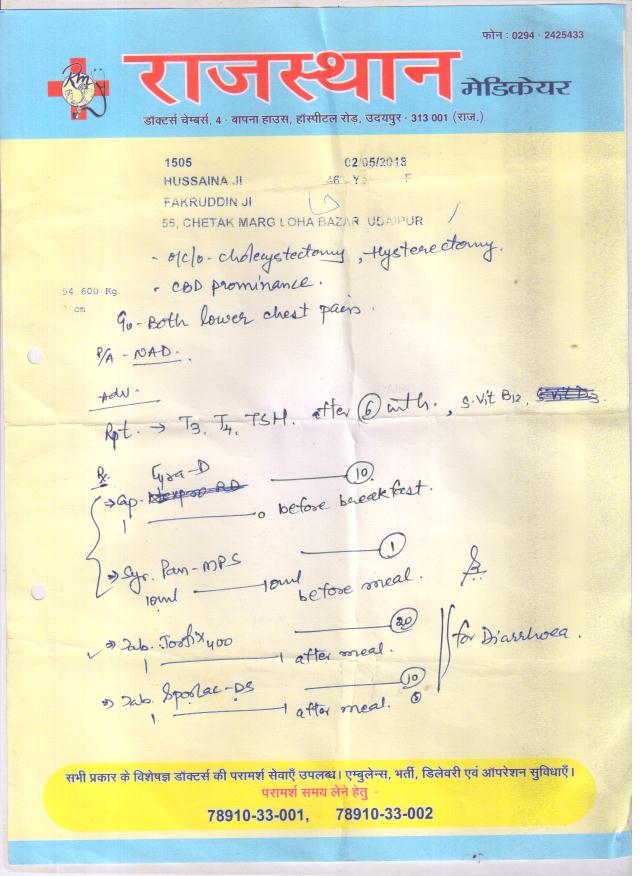 फोन : 0294 - 2425433
राजस्थान मेडिकेयर
डॉक्टर्स चेम्बर्स, 4 - बापना हाउस, हॉस्पीटल रोड़, उदयपुर - 313 001 (राज.)
1505 02/05/2018
HUSSAINA JI 46 F
FAKRUDDIN JI
55, CHETAK MARG LOHA BAZAR UDAIPUR
- o/c/o - cholecystectomy, Hysterectomy.
54.600 Kg
- CBD prominance.
cm
Both lower chest pain.
P/A - NAD.
Adv.
Rpt. → T3, T4, TSH. after 6 mth., S. Vit B12,
Rx
Cyra-D 10
→ Cap.
1 ——— 0 before breakfest.
→ Syr. Pan-MPS 1
10ml ——— 10ml before meal.
→ Tab. 400 20
1 ——— 1 after meal.
for Diarrhoea.
→ Tab. Sporlac-DS 10
1 ——— 1 after meal.
सभी प्रकार के विशेषज्ञ डॉक्टर्स की परामर्श सेवाएँ उपलब्ध। एम्बुलेन्स, भर्ती, डिलेवरी एवं ऑपरेशन सुविधाएँ।
परामर्श समय लेने हेतु -
78910-33-001, 78910-33-002